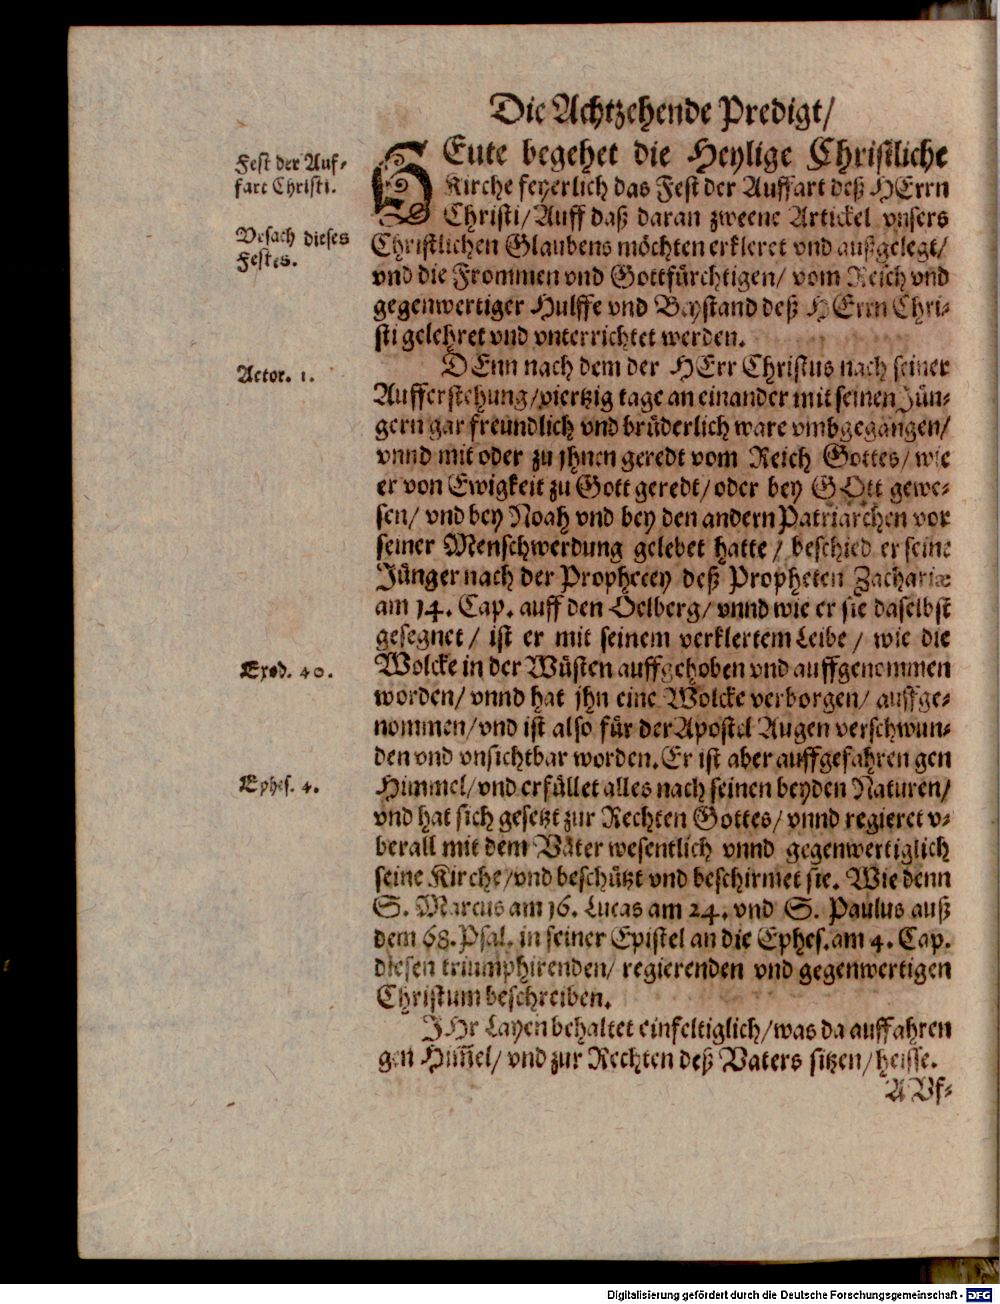 Die Achtzehende Predigt/
Fest der Auf-
fart Christi.
Vrsach dieses
Festes.
HEute begehet die Heylige Christliche
Kirche feyerlich das Fest der Auffart deß HErrn
Christi/ Auff daß daran zweene Artickel vnsers
Christlichen Glaubens möchten erkleret vnd außgelegt/
vnd die Frommen vnd Gottfürchtigen/ vom Reich vnd
gegenwertiger Hulffe vnd Beystand deß HErrn Chri-
sti gelehret vnd vnterrichtet werden.
Actor. 1.
DEnn nach dem der HErr Christus nach seiner
Aufferstehung/ viertzig tage an einander mit seinen Jün-
gern gar freundlich vnd brüderlich ware vmbgegangen/
vnnd mit oder zu jhnen geredt vom Reich Gottes/ wie
er von Ewigkeit zu Gott geredt/ oder bey GOtt gewe-
sen/ vnd bey Noah vnd bey den andern Patriarchen vor
seiner Menschwerdung gelebet hatte/ beschied er seine
Jünger nach der Prophecey deß Propheten Zachariæ
am 14. Cap. auff den Oelberg/ vnnd wie er sie daselbst
gesegnet/ ist er mit seinem verklertem Leibe/ wie die
Exod. 40.
Wolcke in der Wüsten auffgehoben vnd auffgenommen
worden/ vnnd hat jhn eine Wolcke verborgen/ auffge-
nommen/ vnd ist also für der Apostel Augen verschwun-
den vnd vnsichtbar worden. Er ist aber auffgefahren gen
Ephes. 4.
Himmel/ vnd erfüllet alles nach seinen beyden Naturen/
vnd hat sich gesetzt zur Rechten Gottes/ vnnd regieret v-
berall mit dem Vater wesentlich vnnd gegenwertiglich
seine Kirche/ vnd beschützt vnd beschirmet sie. Wie denn
S. Marcus am 16. Lucas am 24. vnd S. Paulus auß
dem 68. Psal. in seiner Epistel an die Ephes. am 4. Cap.
diesen triumphirenden/ regierenden vnd gegenwertigen
Christum beschreiben.
JHr Layen behaltet einfeltiglich/ was da auffahren
gen Him̃el/ vnd zur Rechten deß Vaters sitzen/ heisse.
AVf-
Digitalisierung gefördert durch die Deutsche Forschungsgemeinschaft - DFG